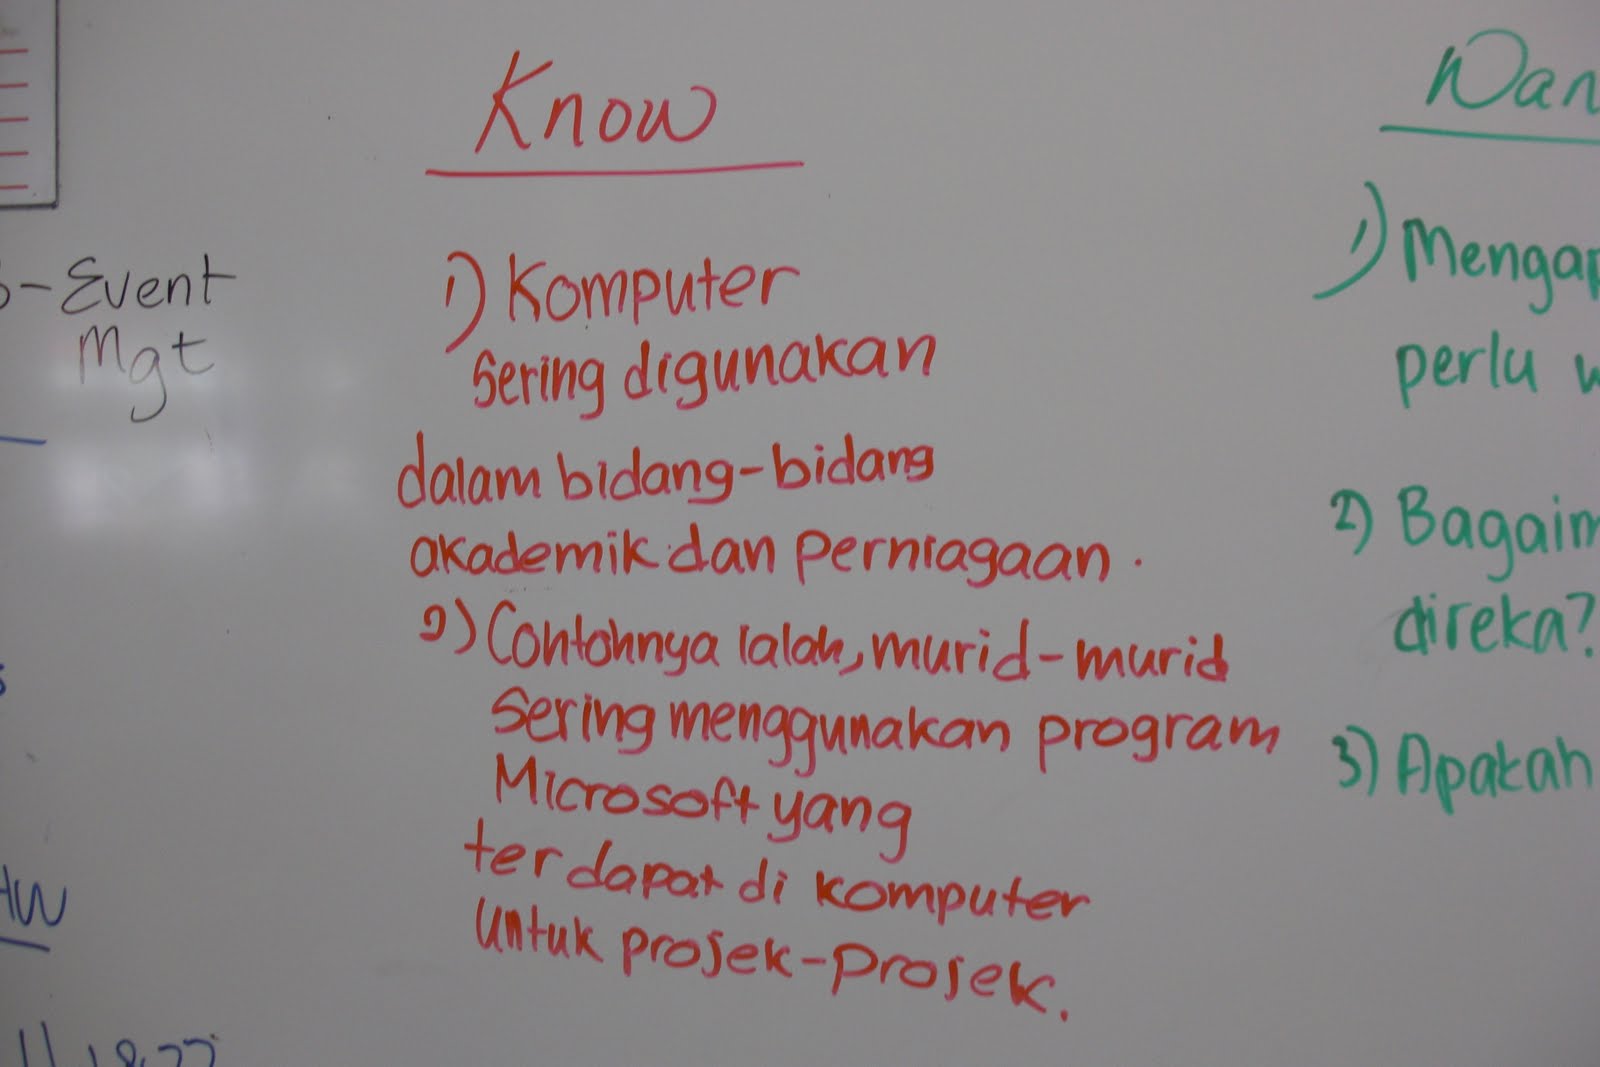 Know
1) Komputer
sering digunakan
dalam bidang-bidang
akademik dan perniagaan.
2) Contohnya ialah, murid-murid
sering menggunakan program
Microsoft yang
terdapat di komputer
untuk projek-projek.
Wan
1) Mengap
perlu w
2) Bagaim
direka?
3) Apakah
-Event
Mgt
HW